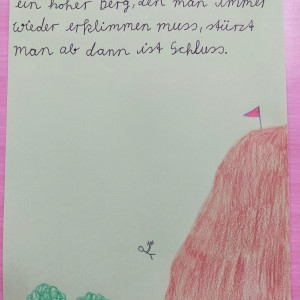 ein hoher Berg, den man immer
wieder erklimmen muss, stürzt
man ab dann ist Schluss.